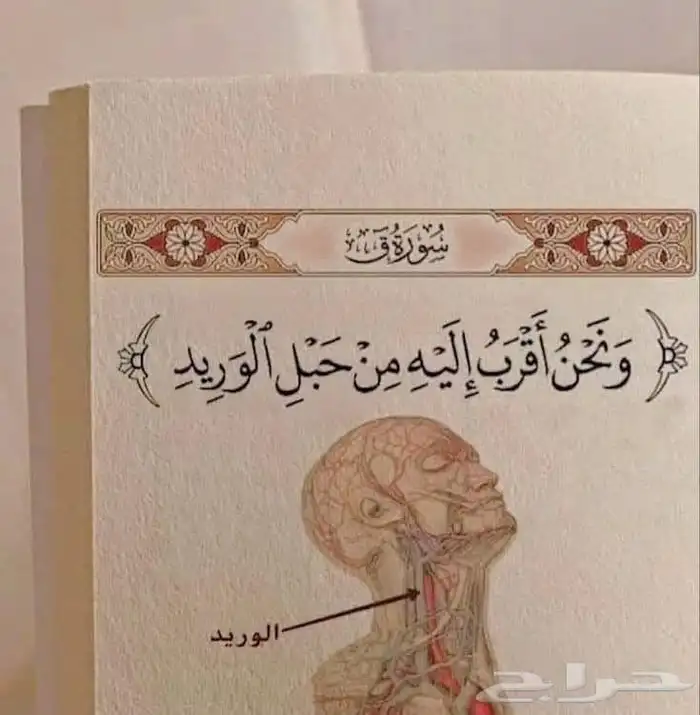 سُورَةُ قٓ
وَنَحْنُ أَقْرَبُ إِلَيْهِ مِنْ حَبْلِ الْوَرِيدِ
الوريد
حراج